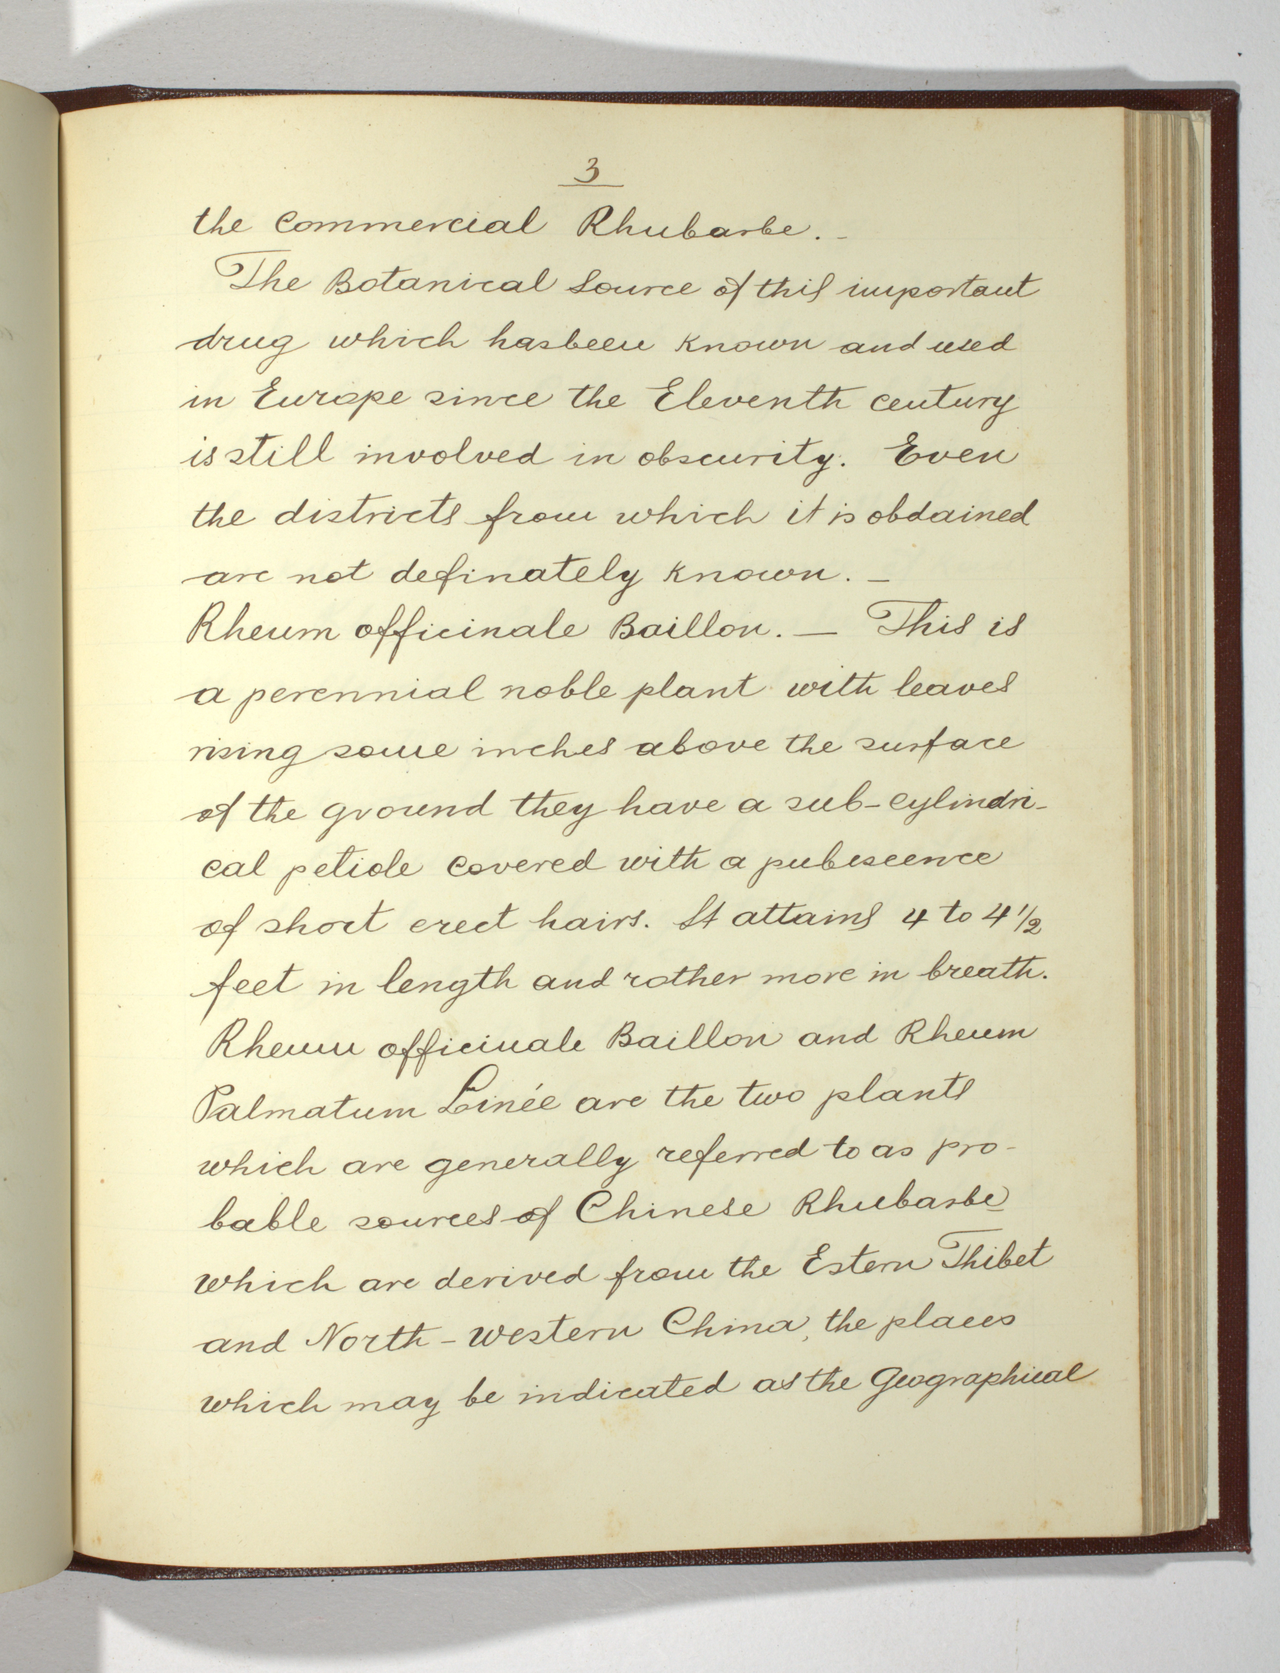 3
the Commercial Rhubarbe. -
The Botanical Source of this important
drug which has been known and used
in Europe since the Eleventh century
is still involved in obscurity. Even
the districts from which it is obdained
are not definately known. -
Rheum officinale Baillon. - This is
a perennial noble plant with leaves
rising some inches above the surface
of the ground they have a sub-cylindri-
cal petiole covered with a pubescence
of short erect hairs. It attains 4 to 4 1/2
feet in length and rather more in breath.
Rheum officinale Baillon and Rheum
Palmatum Linée are the two plants
which are generally referred to as pro-
bable sources of Chinese Rhubarbe
which are derived from the Estern Thibet
and North-western China, the places
which may be indicated as the Geographical